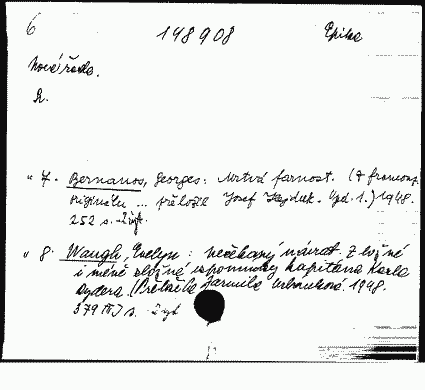 6 148908 Epika
Nová řada.
R.
" 7. Bernanos, Georges: Mrtvá farnost. (Z francouz.
originálu ... přeložil Josef Hajduk. Vyd. 1.) 1948.
252 s.
" 8. Waugh, Evelyn: Nečekaný návrat. Zbožné
i méně zbožné vzpomínky kapitána Karla
Rydera. (Přeložila Jarmila Urbánková 1948.
379 s.